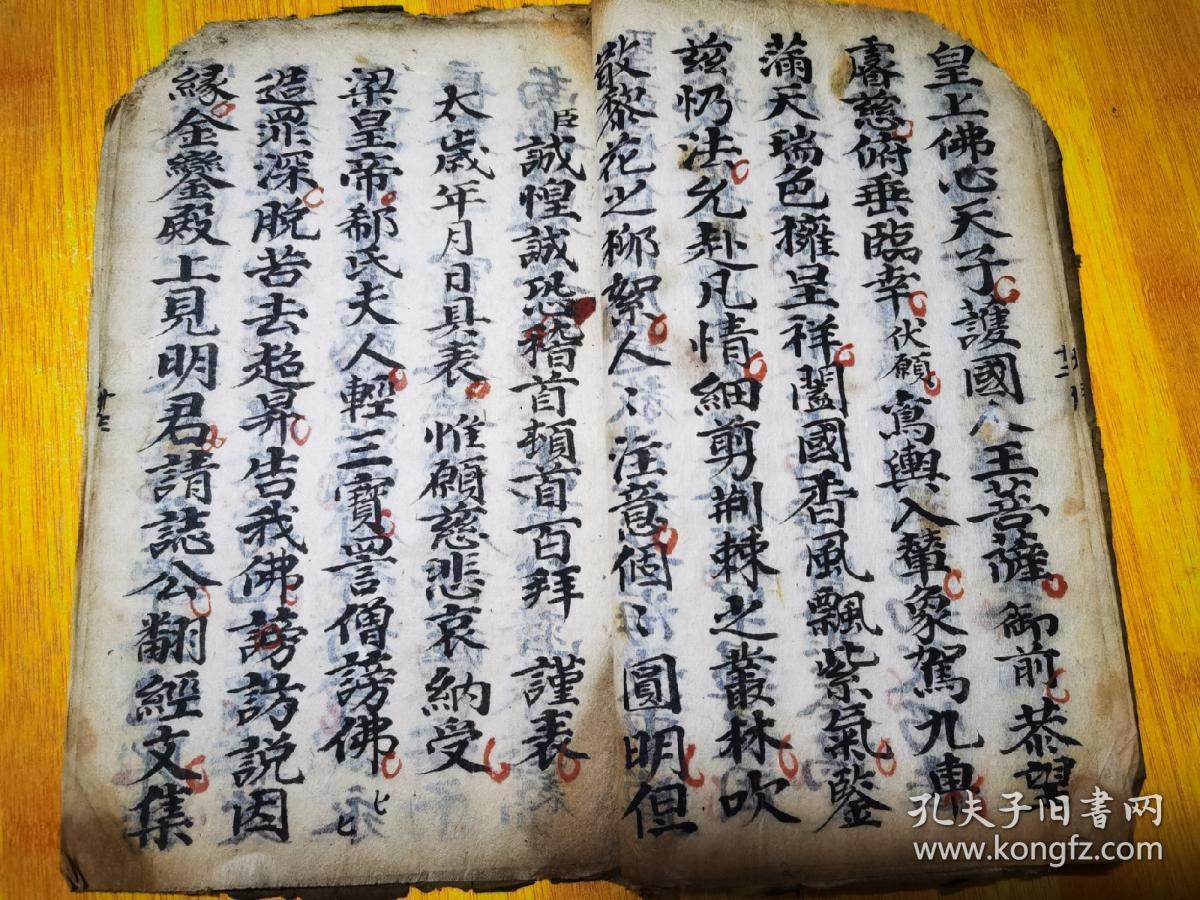 皇上佛心天子護國人王菩薩御前恭望
睿慈俯垂臨幸伏願鸞輿入輦象駕九專
滿天瑞色擁呈祥闔國香風飄紫氣鑒
茲忱法允赴凡情細剪荆棘之叢林吹
散藜花之柳絮人〻注意個〻圓明但
臣誠惶誠恐稽首頓首百拜 謹表
太歲年月日具表惟願慈悲哀納受
梁皇帝郗氏夫人輕三寳詈僧謗佛
造罪深脱苦去超昇告我佛謗訪説因
緣金鑾殿上見明君請誌公翻經文集
孔夫子旧书网
www.kongfz.com